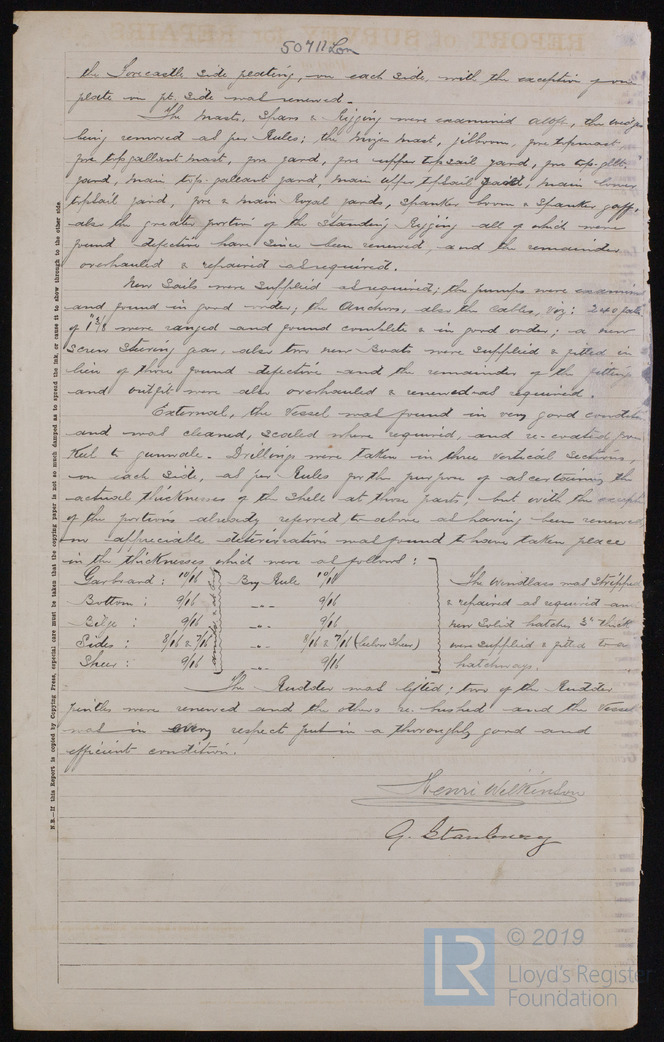 50711 Lon
the Forecastle side plating, on each side with the exception of one
plate on pt. side was renewed.
The Masts, Spars & Rigging were examined aloft, the wedges
being removed as per Rules; the Mizen Mast, jibboom, fore topmast,
fore topgallant mast, fore yard, fore upper topsail yard, fore top-gallt
yard, main top-gallant yard, main upper topsail yard, main lower
topsail yard, fore & main Royal yards, Spanker boom & Spanker gaff,
also the greater portion of the Standing Rigging all of which were
found defective have since been renewed, and the remainder
overhauled & repaired as required.
New Sails were supplied as required; the pumps were examined
and found in good order; the Anchors, also the Cables, viz: 240 fath
of 1 7/8 were ranged and found complete & in good order; a new
Screw Steering gear, also two new Boats were supplied & fitted in
lieu of those found defective and the remainder of the fittings
and outfit were also overhauled & renewed as required.
External, the Vessel was found in very good condition
and was cleaned, scaled where required, and re-coated from
Keel to gunwale. Drillings were taken in three Vertical Sections,
on each side, as per Rules for the purpose of ascertaining the
actual thicknesses of the Shell at those parts, but with the except
of the portions already referred to above as having been renewed
no appreciable deterioration was found to have taken place
in the thicknesses which were as follows:
Garboard: 10/16 By Rule 10/16 The Windlass was stripped
Bottom: 9/16 " 9/16 & repaired as required and
Bilge: 9/16 " 9/16 new Solid hatches 3" thick
Sides: 8/16 & 7/16 " 8/16 & 7/16 (below Sheer) were supplied & fitted to
Sheer: 9/16 " 9/16 hatchways.
The Rudder was lifted; two of the Rudder
pintles were renewed and the others re-bushed and the Vessel
was in every respect put in a thoroughly good and
efficient condition.
Henri Wilkinson
G. Stanbury
N.B.—If this Report is copied by Copying Press, especial care must be taken that the copying paper is not so much damped as to spread the ink, or cause it to show through to the other side.
LR
© 2019
Lloyd's Register
Foundation